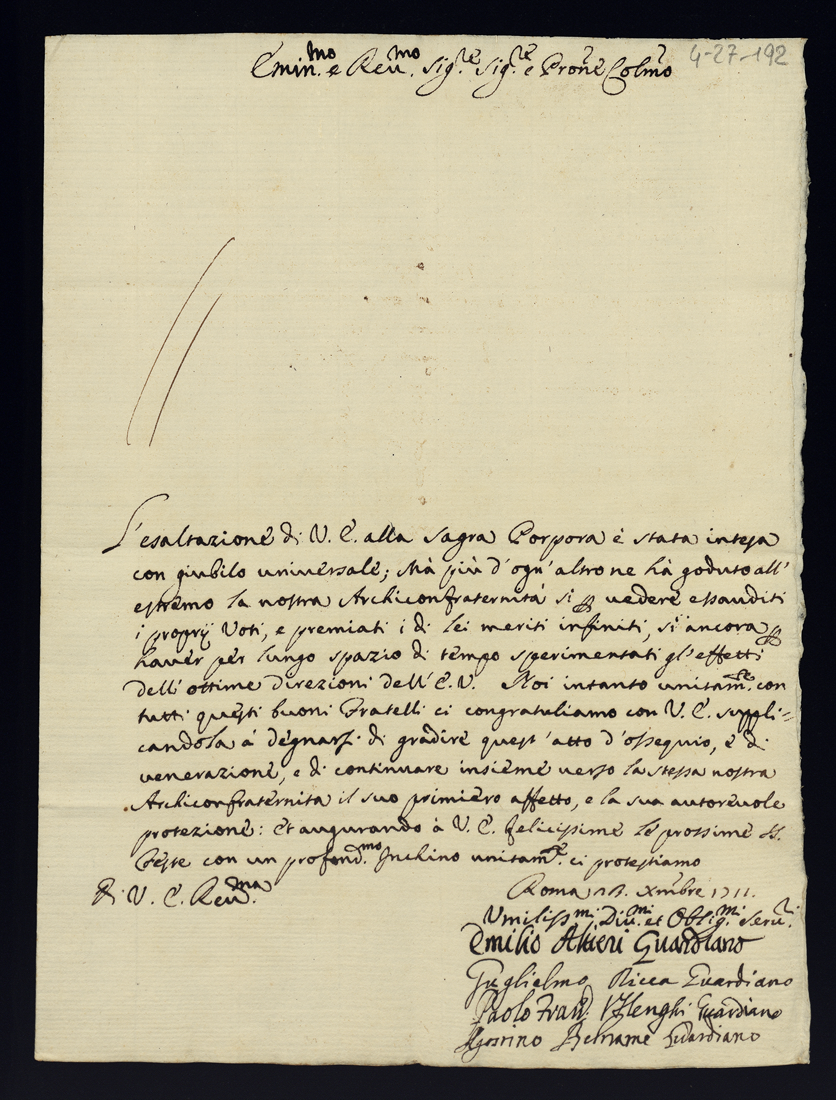 4-27-192
Emin.mo e Reu.mo Sig.re Sig.re e Pro͠ne Colmo
L'esaltazione di V. E. alla Sagra Porpora è stata intesa
con giubilo universale; Mà più d'ogn'altro ne hà goduto all'
estremo la nostra Archiconfraternità si ꝑ vedere essauditi
i proprij Voti, e premiati i di lei meriti infiniti, si ancora ꝑ
haver per lungo spazio di tempo sperimentati gl'effetti
dell'ottime direzioni dell'E. V. Noi intanto unitam.te con
tutti questi buoni Fratelli ci congratuliamo con V. E. suppli=
candola à degnarsi di gradire quest'atto d'ossequio, e di
venerazione, e di continuare insieme verso la stessa nostra
Archiconfraternita il suo primiero affetto, e la sua autorevole
protezione: Et augurando à V. E. felicissime le prossime SS.
Feste con un profond.mo Inchino unitam.te ci protestiamo
Di V. E. Reu.ma
Roma Xmbre 1711.
Vmiliss.mi Diu.mi et Oblig.mi Seru.i
Emilio Altieri Guardiano
Guglielmo Guardiano
Paolo Guardiano
Agostino Guardiano